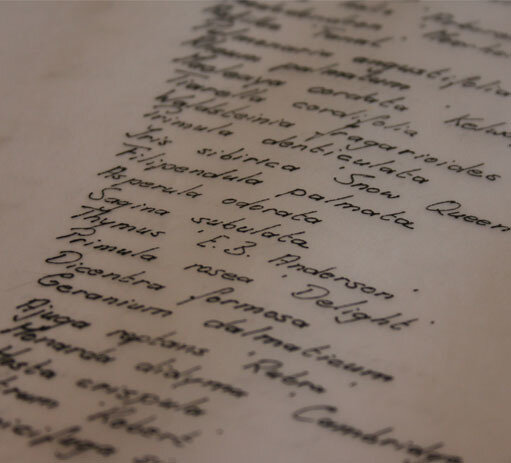 Pulmonaria angustifolia
Rheum palmatum
Macleaya cordata 'Kelwa
Tiarella cordifolia
Waldsteinia fragarioides
Primula denticulata
Iris sibirica 'Snow Queen
Filipendula palmata
Asperula odorata
Sagina subulata
Thymus 'E.B. Anderson'
Primula rosea 'Delight'
Dicentra formosa
Geranium dalmaticum
Ajuga reptans 'Rubra'
Monarda didyma 'Cambridge
Hosta crispula
trum 'Robert'
icifuga